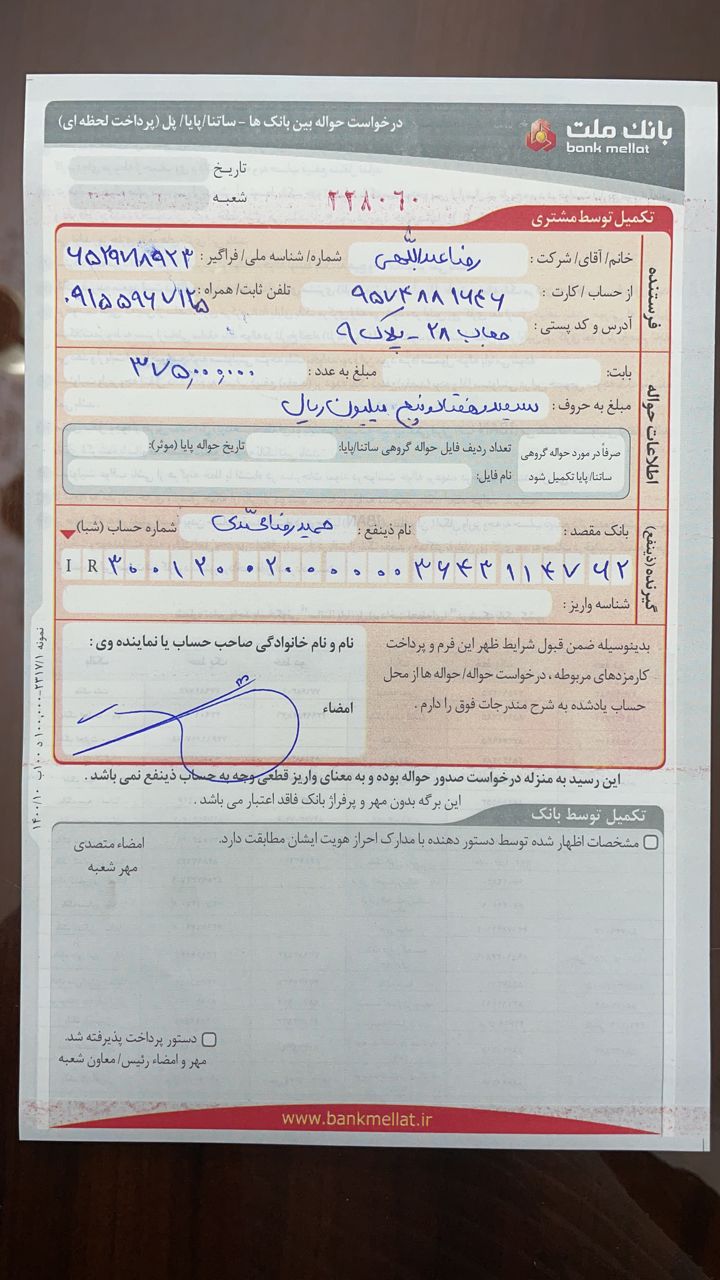 بانک ملت
bank mellat
درخواست حواله بین بانک ها - ساتنا/پایا/ پل (پرداخت لحظه ای)
تاریخ
شعبه
۲۲۸۰۶۰
تکمیل توسط مشتری
فرستنده
خانم/ آقای/ شرکت : رضا عبداللهی شماره/ شناسه ملی/ فراگیر :
از حساب / کارت : ۹۵۷۴۸۸۱۶۴۶ تلفن ثابت/ همراه :
آدرس و کد پستی : ۲۸ - پلاک ۹
اطلاعات حواله
بابت: مبلغ به عدد : ۳۷۵,۰۰۰,۰۰۰
مبلغ به حروف : سیصد و هفتاد و پنج میلیون ریال
صرفاً در مورد حواله گروهی ساتنا/ پایا تکمیل شود
تعداد ردیف فایل حواله گروهی ساتنا/پایا: تاریخ حواله پایا (موثر):
نام فایل:
گیرنده (ذینفع)
بانک مقصد : نام ذینفع : حمیدرضا محمدی شماره حساب (شبا)
IR ۳۰۰۱۲۰۰۲۰۰۰۰۰۰۳۶۴۳۹۱۱۴۷۶۲
شناسه واریز :
بدینوسیله ضمن قبول شرایط ظهر این فرم و پرداخت
کارمزدهای مربوطه ، درخواست حواله/ حواله ها از محل
حساب یادشده به شرح مندرجات فوق را دارم .
نام و نام خانوادگی صاحب حساب یا نماینده وی :
امضاء
این رسید به منزله درخواست صدور حواله بوده و به معنای واریز قطعی وجه به حساب ذینفع نمی باشد .
این برگه بدون مهر و پرفراژ بانک فاقد اعتبار می باشد .
تکمیل توسط بانک
مشخصات اظهار شده توسط دستور دهنده با مدارک احراز هویت ایشان مطابقت دارد.
امضاء متصدی
مهر شعبه
دستور پرداخت پذیرفته شد.
مهر و امضاء رئیس/ معاون شعبه
www.bankmellat.ir
نمونه ۲۳۱۷/۱-۱۰۰,۰۰۰ د ۱۰۰ب ۱۴۰۰/۱۰